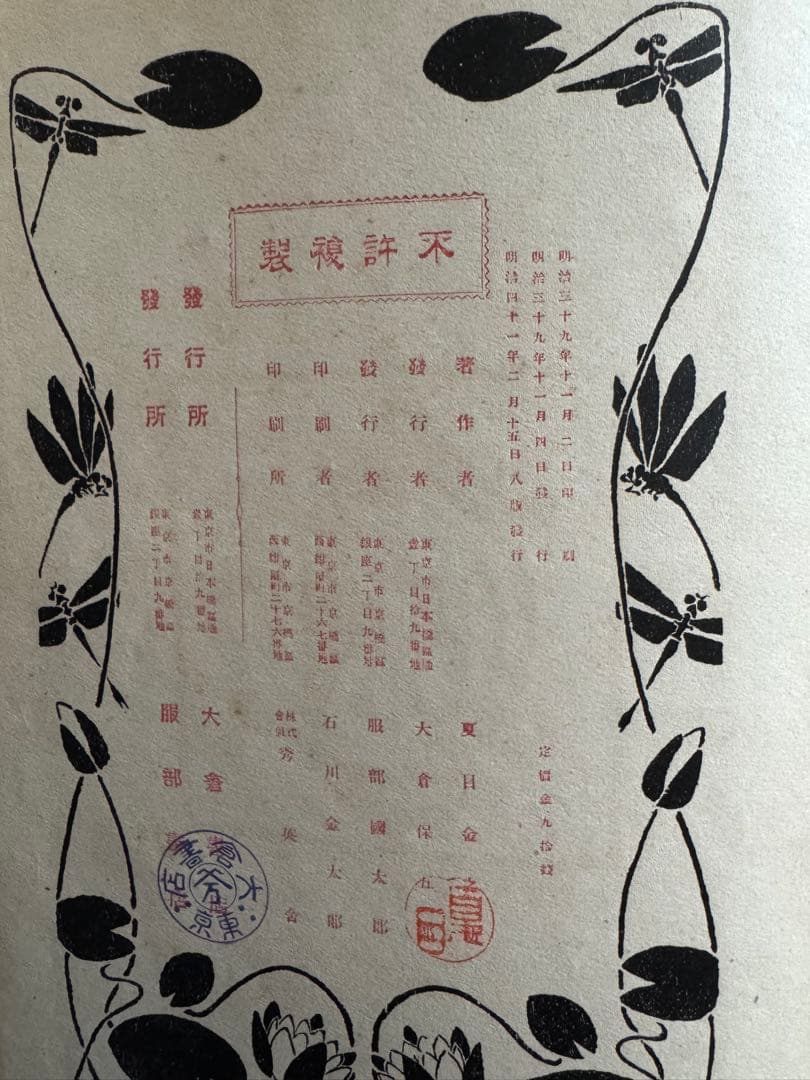 不許複製
明治三十九年十一月二日印刷
明治三十九年十一月四日發行
明治四十一年二月十五日八版發行
定價金九拾錢
著作者 夏目金
發行者 東京市日本橋區通壹丁目拾九番地 大倉保五
發行者 東京市京橋區銀座二丁目九番地 服部國太郎
印刷者 東京市京橋區西紺屋町二十六七番地 石川金太郎
印刷所 東京市京橋區西紺屋町二十六七番地 株式會社 秀英舍
發行所 東京市日本橋區通壹丁目拾九番地 大倉
發行所 東京市京橋區銀座二丁目九番地 服部
大倉書店
東京